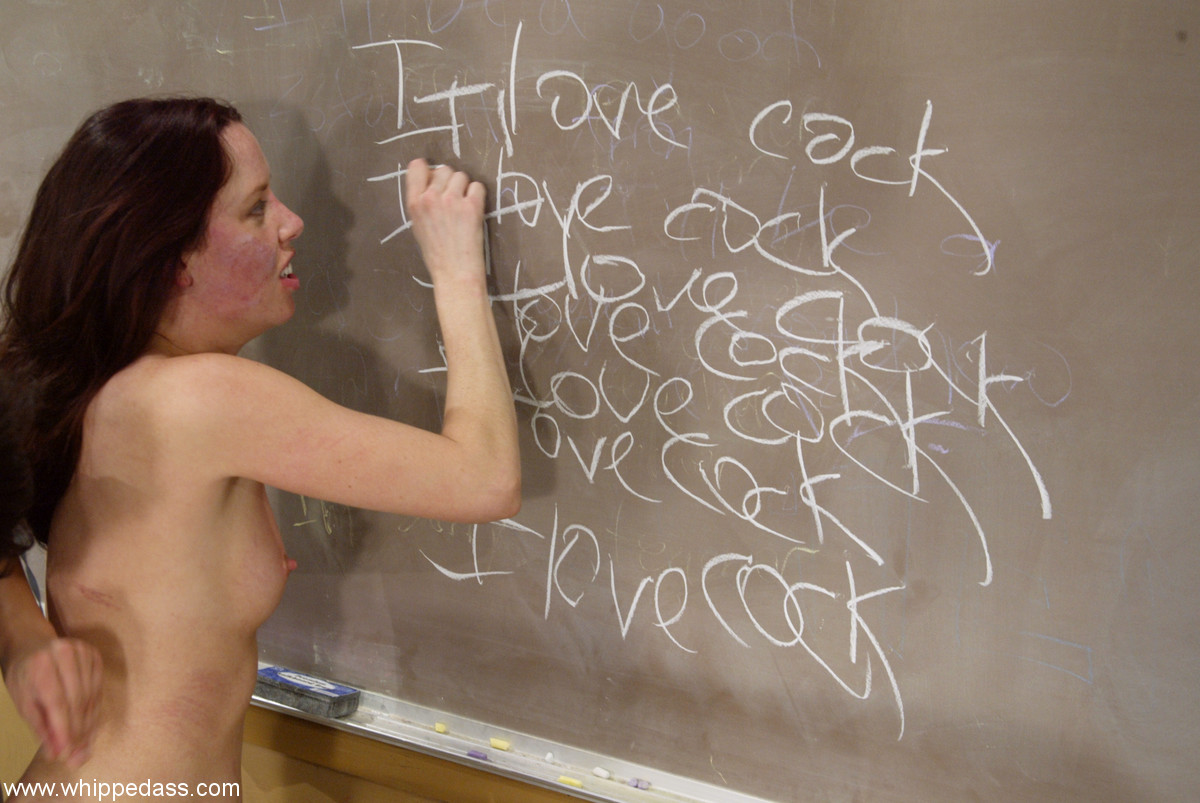 I love cock
I love cock
I love cock
I love cock
I love cock
I love cock
I love cock
www.whippedass.com